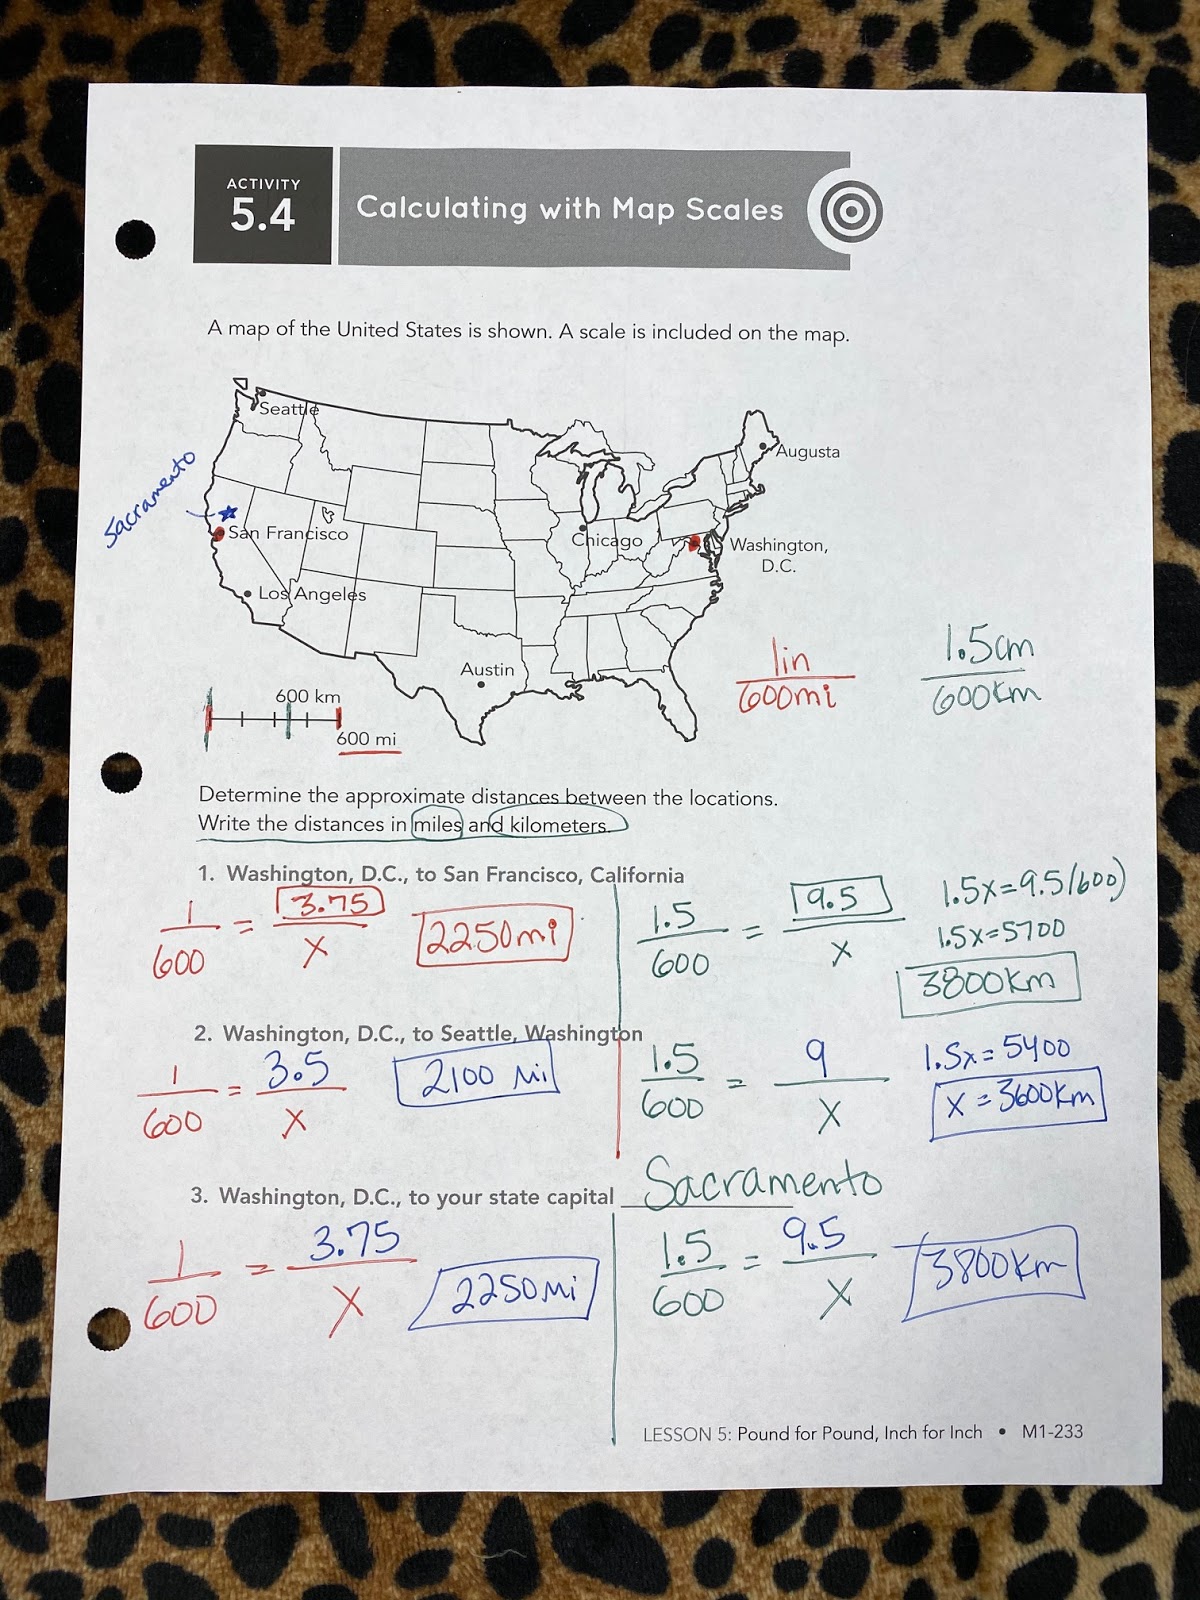 ACTIVITY
5.4
Calculating with Map Scales
A map of the United States is shown. A scale is included on the map.
Seattle
Augusta
Sacramento
San Francisco
Chicago
Washington,
D.C.
Los Angeles
Austin
600 km
600 mi
1in
600mi
1.5cm
600km
Determine the approximate distances between the locations.
Write the distances in miles and kilometers.
1. Washington, D.C., to San Francisco, California
1/600 = 3.75/x
2250mi
1.5/600 = 9.5/x
1.5x=9.5(600)
1.5x=5700
3800km
2. Washington, D.C., to Seattle, Washington
1/600 = 3.5/x
2100 Mi
1.5/600 = 9/x
1.5x=5400
x=3600km
3. Washington, D.C., to your state capital Sacramento
1/600 = 3.75/x
2250Mi
1.5/600 = 9.5/x
3800km
LESSON 5: Pound for Pound, Inch for Inch • M1-233